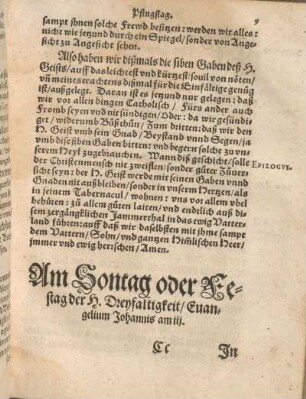 Pfingstag. 9
sampt jhnen solche Frewd besitzen: werden wir alles:
nicht wie jetzund durch ein Spiegel/ sonder von Ange-
sicht zu Angesicht sehen.
Also haben wir dißmals die siben Gaben deß H.
Geists/ auff das leichtest vnd kürtzest/ souil von nöten/
vñ meines erachtens dißmal für die Einfältige genůg
ist/ außgelegt. Daran ist es jetzund nur gelegen: daß
wir vor allen dingen Catholisch/ Fürs ander auch
Fromb seyen vnd nit sündigen/ Oder: da wir gesündi-
get/ widerumb Büßschůn/ Zum dritten: daß wir den
H. Geist vmb sein Gnad/ Beystand vnnd Segen/ ja
vmb dise siben Gaben bitten: vnd begern solche zu vn-
serem Heyl zugebrauchen. Wann diß geschicht/ solle
EPILOGVS.
der Christenmensch nit zweiflen/ sonder gůter Zůuer-
sicht seyn: der H. Geist werde mit seinen Gaben vnnd
Gnaden nit außbleiben/ sonder in vnserm Hertzen/ als
in seinem Tabernacul/ wohnen: vns vor allem vbel
behüten: zů allem gůten laiten/ vnd endtlich auß di-
sem zergänglichen Jammerthal in das ewig Vatter-
land führen: auff daß wir daselbsten mit jhme sampt
dem Vattern/ Sohn/ vnd gantzen Himlischen Heer/
jmmer vnd ewig herschen/ Amen.
Am Sontag oder Fe-
stag der H. Dreyfaltigkeit/ Euan-
gelium Johannis am iij.
Cc In